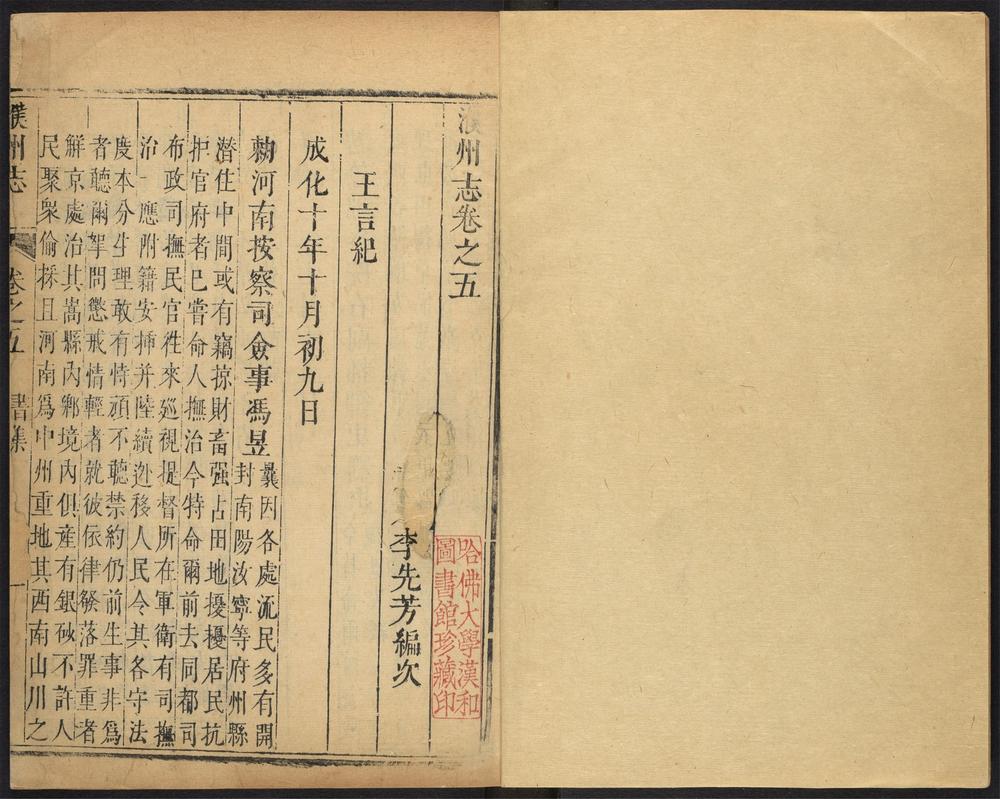 濮州志卷之五
哈佛大學漢和
圖書館珍藏印
李先芳編次
王言紀
成化十年十月初九日
勅河南按察司僉事馮昱
曩因各處流民多有開
封南陽汝寧等府州縣
潛住中間或有竊掠財畜强占田地擾擾居民抗
拒官府者已嘗命人撫治今特命爾前去同都司
布政司撫民官徃來廵視提督所在軍衛有司撫
治一應附籍安揷并陸續迯移人民令其各守法
度本分生理敢有恃頑不聽禁約仍前生事非爲
者聽爾拏問懲戒情輕者就彼依律發落罪重者
觧京處治其嵩縣内鄉境内俱産有銀砂不許人
民聚衆偷採且河南爲中州重地其西南山川之
濮州志 卷之五 書集 一